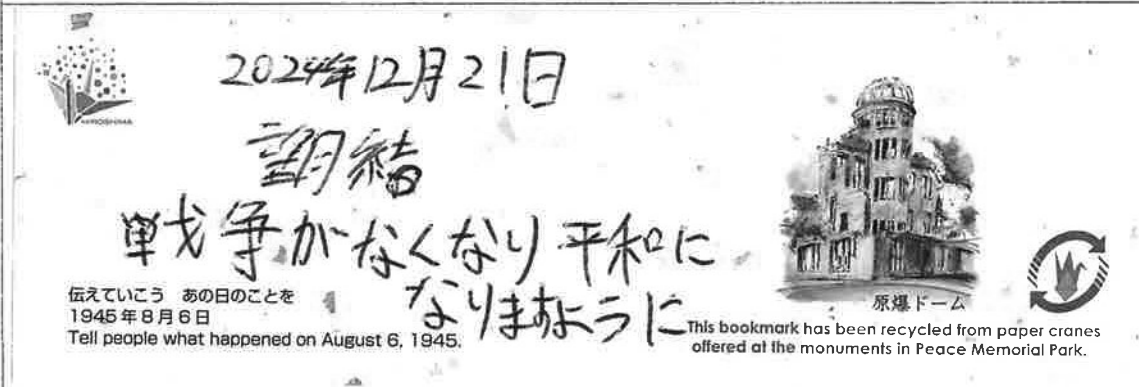 HIROSHIMA
2024年12月21日
望結
戦争がなくなり平和に
なりますように
伝えていこう　あの日のことを
1945年8月6日
Tell people what happened on August 6, 1945.
原爆ドーム
This bookmark has been recycled from paper cranes
offered at the monuments in Peace Memorial Park.